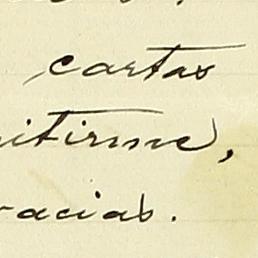 cartas
itirme,
racias.